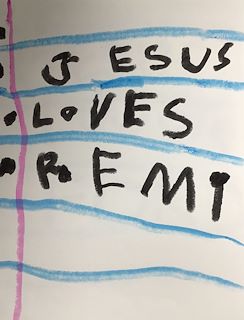 JESUS
LOVES
REMI